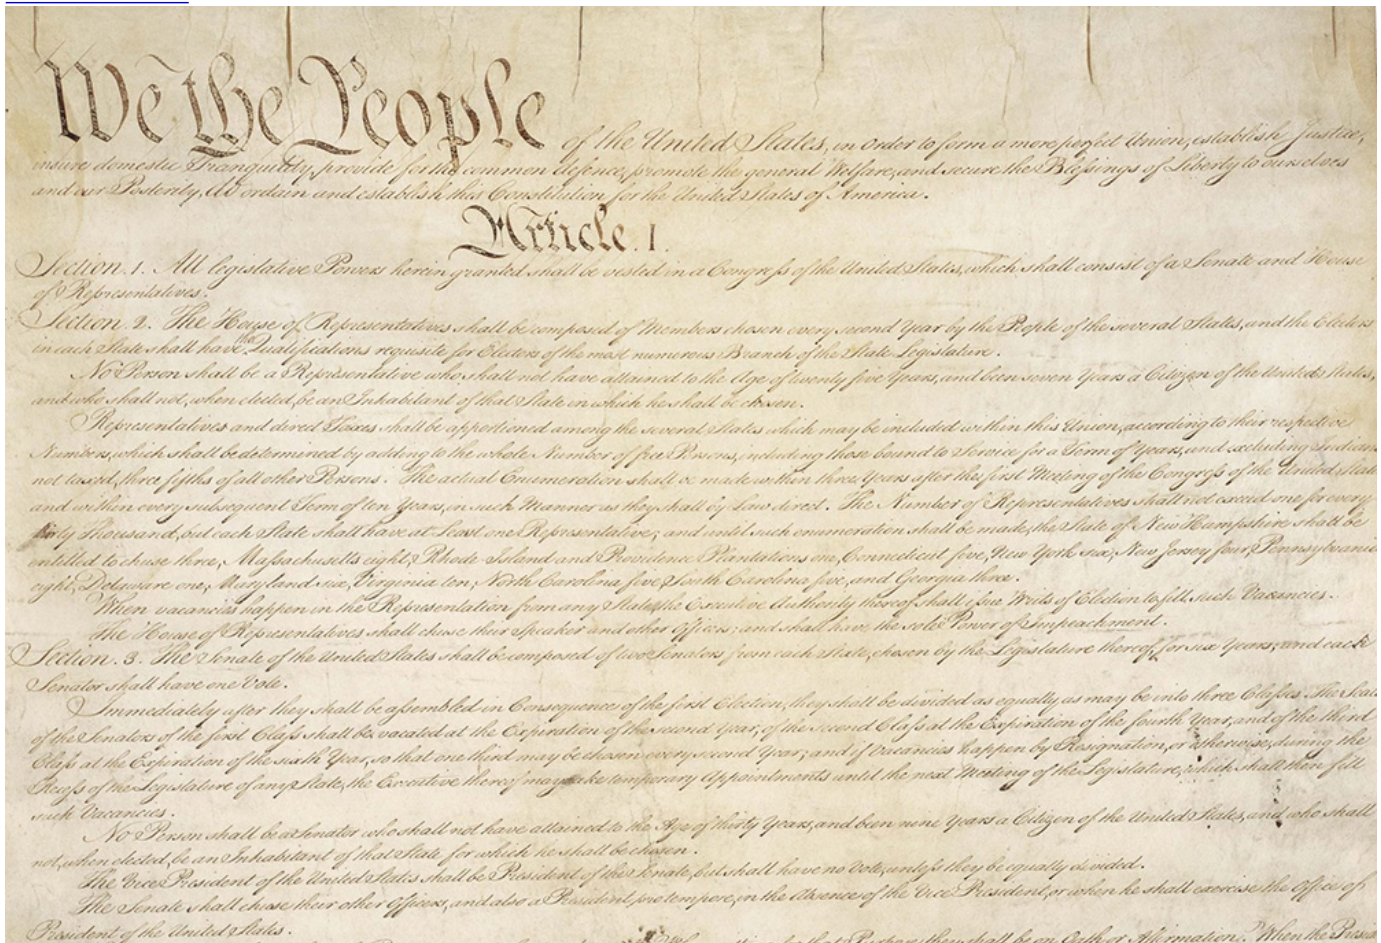 We the People of the United States, in Order to form a more perfect Union, establish Justice,
insure domestic Tranquility, provide for the common defence, promote the general Welfare, and secure the Blessings of Liberty to ourselves
and our Posterity, do ordain and establish this Constitution for the United States of America.
Article. I.
Section. 1. All legislative Powers herein granted shall be vested in a Congress of the United States, which shall consist of a Senate and House
of Representatives.
Section. 2. The House of Representatives shall be composed of Members chosen every second Year by the People of the several States, and the Electors
in each State shall have the Qualifications requisite for Electors of the most numerous Branch of the State Legislature.
No Person shall be a Representative who shall not have attained to the Age of twenty five Years, and been seven Years a Citizen of the United States,
and who shall not, when elected, be an Inhabitant of that State in which he shall be chosen.
Representatives and direct Taxes shall be apportioned among the several States which may be included within this Union, according to their respective
Numbers, which shall be determined by adding to the whole Number of free Persons, including those bound to Service for a Term of Years, and excluding Indians
not taxed, three fifths of all other Persons. The actual Enumeration shall be made within three Years after the first Meeting of the Congress of the United States,
and within every subsequent Term of ten Years, in such Manner as they shall by Law direct. The Number of Representatives shall not exceed one for every
thirty Thousand, but each State shall have at Least one Representative; and until such enumeration shall be made, the State of New Hampshire shall be
entitled to chuse three, Massachusetts eight, Rhode Island and Providence Plantations one, Connecticut five, New York six, New Jersey four, Pennsylvania
eight, Delaware one, Maryland six, Virginia ten, North Carolina five, South Carolina five, and Georgia three.
When vacancies happen in the Representation from any State, the Executive Authority thereof shall issue Writs of Election to fill such Vacancies.
The House of Representatives shall chuse their Speaker and other Officers; and shall have the sole Power of Impeachment.
Section. 3. The Senate of the United States shall be composed of two Senators from each State, chosen by the Legislature thereof, for six Years; and each
Senator shall have one Vote.
Immediately after they shall be assembled in Consequence of the first Election, they shall be divided as equally as may be into three Classes. The Seats
of the Senators of the first Class shall be vacated at the Expiration of the second Year, of the second Class at the Expiration of the fourth Year, and of the third
Class at the Expiration of the sixth Year, so that one third may be chosen every second Year; and if Vacancies happen by Resignation, or otherwise, during the
Recess of the Legislature of any State, the Executive thereof may make temporary Appointments until the next Meeting of the Legislature, which shall then fill
such Vacancies.
No Person shall be a Senator who shall not have attained to the Age of thirty Years, and been nine Years a Citizen of the United States, and who shall
not, when elected, be an Inhabitant of that State for which he shall be chosen.
The Vice President of the United States shall be President of the Senate, but shall have no Vote, unless they be equally divided.
The Senate shall chuse their other Officers, and also a President pro tempore, in the Absence of the Vice President, or when he shall exercise the Office of
President of the United States.
that Purpose, they shall be on Oath or Affirmation. When the